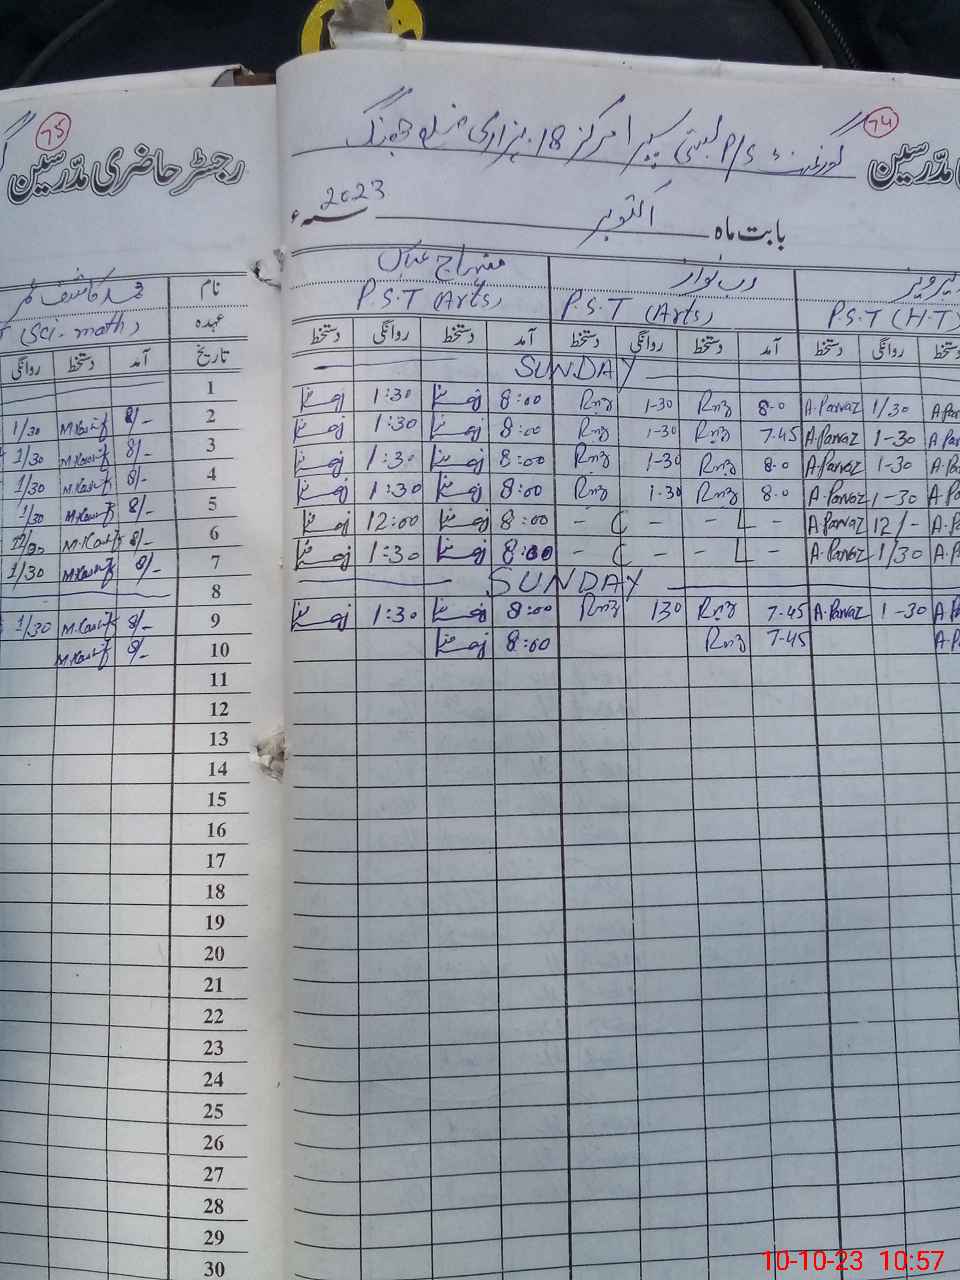 75
رجسٹر حاضری مدّرسین
نام
عہدہ (Sci-math)
تاریخ آمد دستخط روانگی
1
2 8/- M.Kashif 1/30
3 8/- M.Kashif 1/30
4 8/- M.Kashif 1/30
5 8/- M.Kashif 1/30
6 8/- M.Kashif
7 8/- M.Kashif 1/30
8
9 8/- M.Kashif 1/30
10 8/- M.Kashif
11
12
13
14
15
16
17
18
19
20
21
22
23
24
25
26
27
28
29
30
74
مدّرسین
گورنمنٹ P/S بستی مرکز 18 ہزاری ضلع جھنگ
بابت ماہ اکتوبر سنہ 2023ء
رب نواز عباس
P.S.T (H.T) P.S.T (Arts) P.S.T (Arts)
دستخط روانگی دستخط آمد دستخط روانگی دستخط آمد دستخط روانگی دستخط
SUNDAY
1:30 8:00 Rnz 1-30 Rnz 8-0 A.Parvaz 1/30
1:30 8:00 Rnz 1-30 Rnz 7-45 A.Parvaz 1-30
1:30 8:00 Rnz 1-30 Rnz 8-0 A.Parvaz 1-30
1:30 8:00 Rnz 1-30 Rnz 8-0 A.Parvaz 1-30
12:00 8:00 - C - - L - A.Parvaz 12/-
1:30 8:00 - C - - L - A.Parvaz 1/30
SUNDAY
1:30 8:00 Rnz 130 Rnz 7-45 A.Parvaz 1-30
8:00 Rnz 7-45
10-10-23 10:57